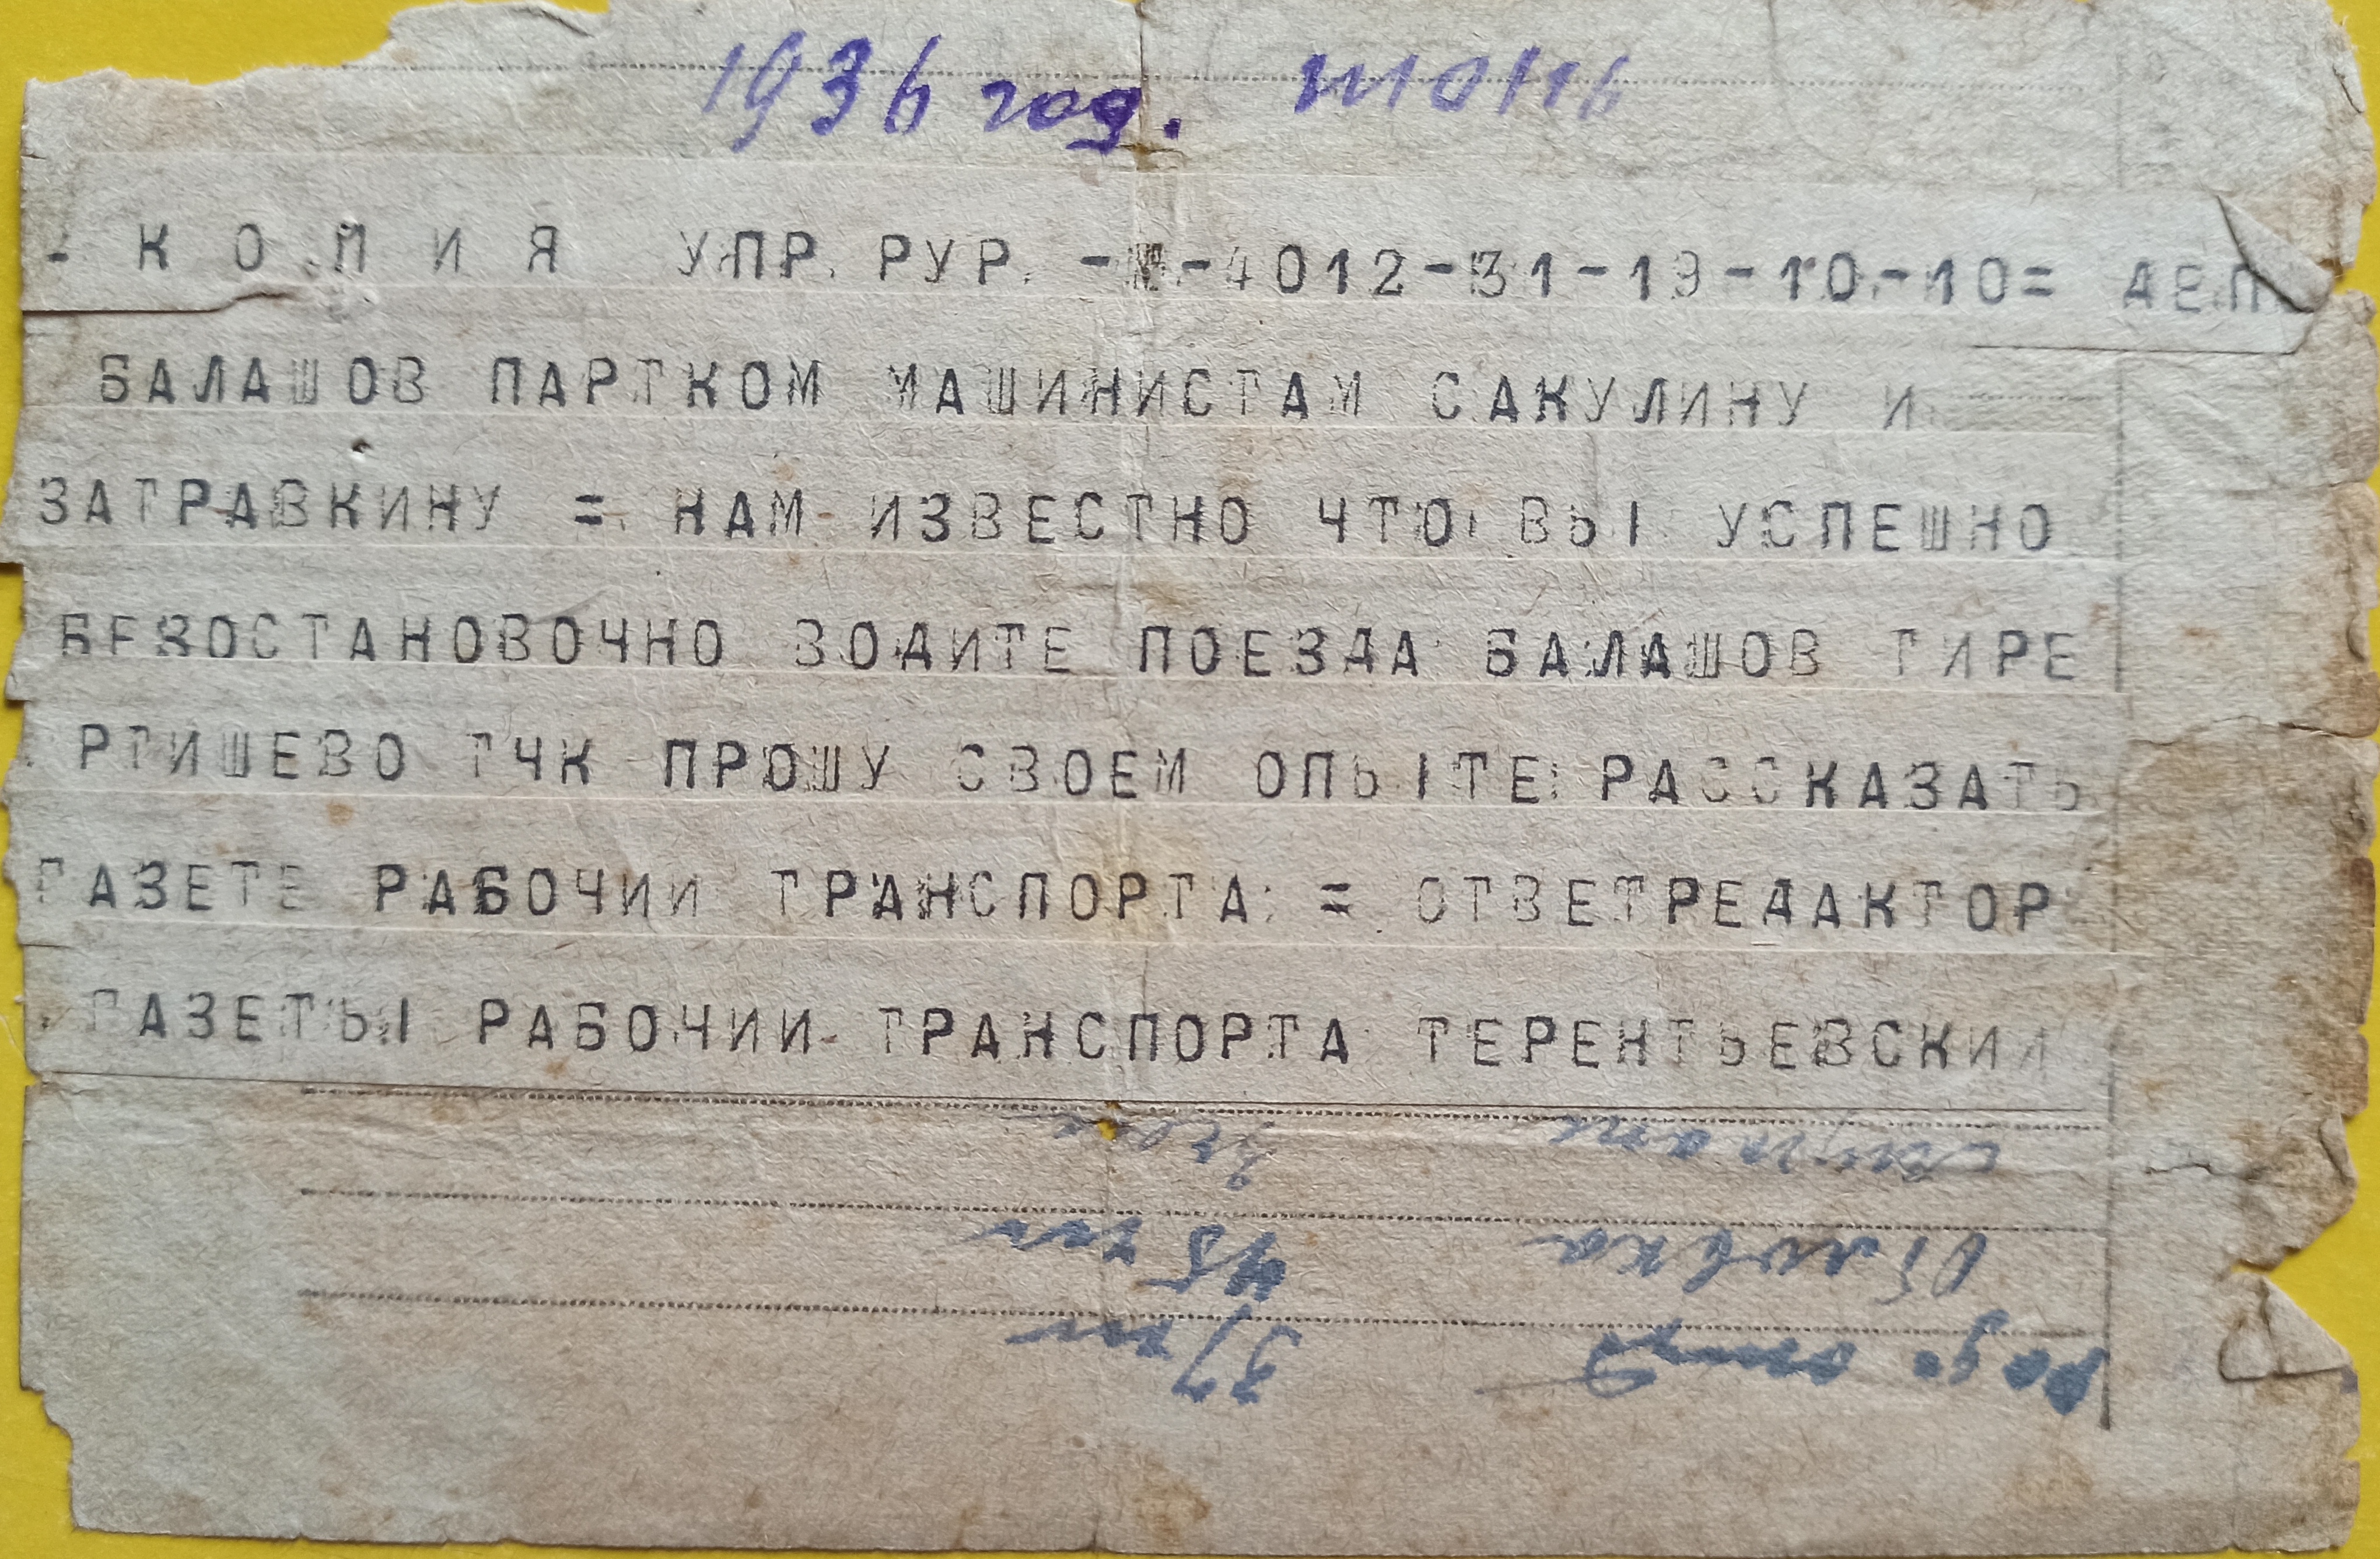 1936 год.
- К О П И Я УПР. РУР. - -4012-31-19-10-10= ДЕП
БАЛАШОВ ПАРТКОМ МАШИНИСТАМ САКУЛИНУ И
ЗАТРАВКИНУ = НАМ ИЗВЕСТНО ЧТО ВЫ УСПЕШНО
БЕЗОСТАНОВОЧНО ВОДИТЕ ПОЕЗДА БАЛАШОВ ТИРЕ
РТИШЕВО ТЧК ПРОШУ СВОЕМ ОПЫТЕ РАССКАЗАТЬ
ГАЗЕТЕ РАБОЧИИ ТРАНСПОРТА = ОТВЕТРЕДАКТОР
ГАЗЕТЫ РАБОЧИИ ТРАНСПОРТА ТЕРЕНТЬЕВСКИИ
45
37